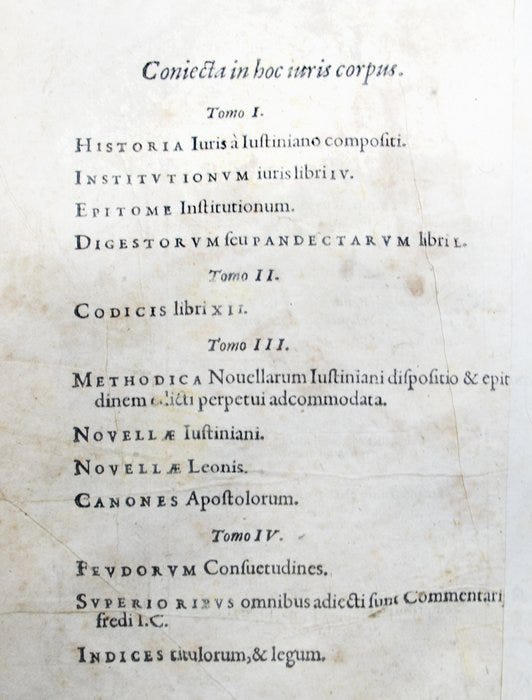 Coniecta in hoc iuris corpus.
Tomo I.
HISTORIA Iuris à Iustiniano compositi.
INSTITVTIONVM iuris libri IV.
EPITOME Institutionum.
DIGESTORVM seu PANDECTARVM libri L.
Tomo II.
CODICIS libri XII.
Tomo III.
METHODICA Nouellarum Iustiniani dispositio & epit
dinem edicti perpetui adcommodata.
NOVELLÆ Iustiniani.
NOVELLÆ Leonis.
CANONES Apostolorum.
Tomo IV.
FEVDORVM Consuetudines.
SVPERIORIBVS omnibus adiecti sunt Commentarij
fredi I.C.
INDICES titulorum, & legum.